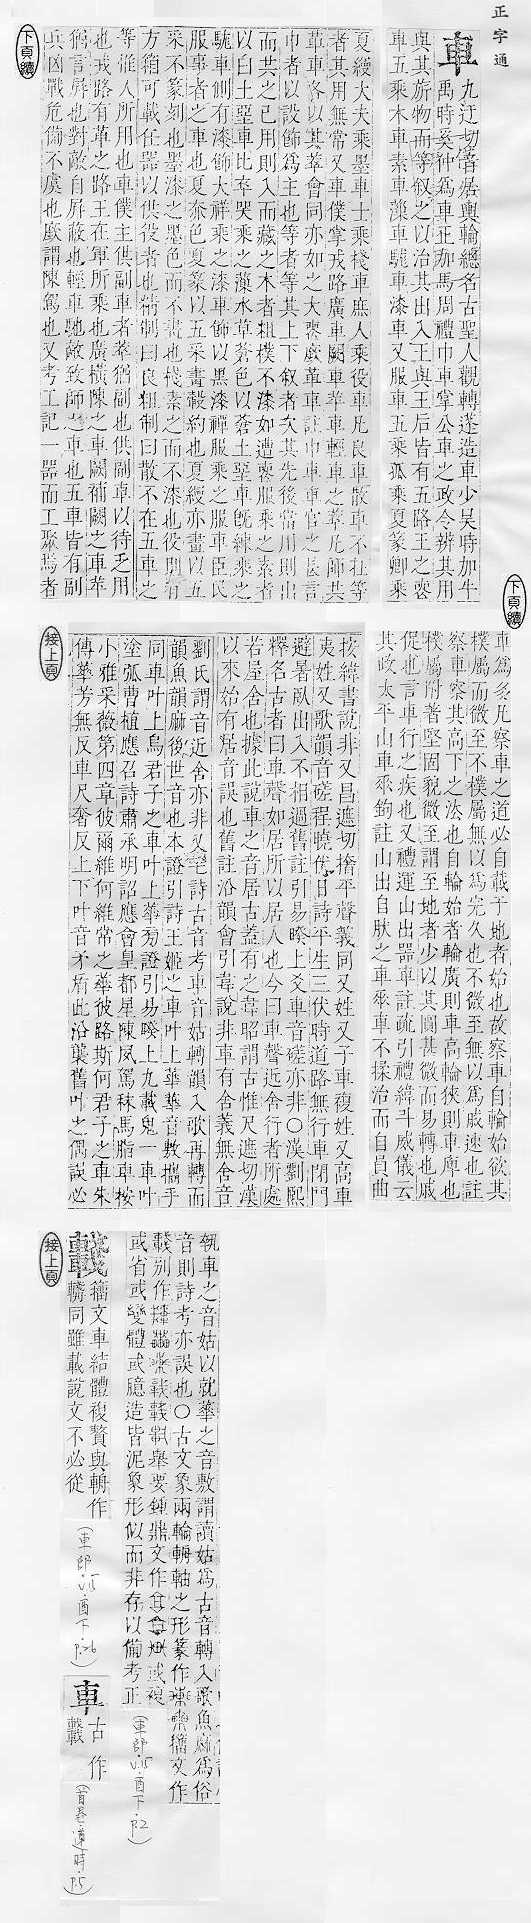 正字通
車
九迂切音居輿輪總名古聖人觀轉蓬造車少昊時加牛
禹時奚仲爲車正加馬周禮巾車掌公車之政令辨其用
與其旂物而等叙之以治其出入王與王后皆有五路王之喪
車五乘木車素車藻車駹車漆車又服車五乘孤乘夏篆卿乘
夏縵大夫乘墨車士乘棧車庶人乘役車凡良車散車不在等
者其用無常又車僕掌戎路廣車闕車苹車輕車之萃凡師共
革車各以其萃會同亦如之大喪廞革車註巾車車官之長言
巾者以設飾爲主也等者等其上下叙者次其先後常用則出
而共之已用則入而藏之木者粗樸不漆如遭喪服乘之素者
以白土堊車比卒哭乘之藻水草蒼色以蒼土堊車旣練乘之
駹車側有漆飾大祥乘之漆車飾以黑漆禫服乘之服車臣民
服事者之車也夏赤色夏篆以五采畫轂約也夏縵亦畫以五
采不篆刻也墨漆之黑色而不畫也棧素之而不漆也役則有
方箱可載任器以供役者也精制曰良粗制曰散不在五車之
等惟人所用也車僕主供副車者萃猶副也供副車以待乏用
也戎路有革之路王在軍所乘也廣橫陳之車闕補闕之車苹
猶言屏也對敵自屏蔽也輕車馳敵致師之車也五車皆有副
兵凶戰危備不虞也廞謂陳駕也又考工記一器而工聚焉者
下頁續
下頁續
車爲多凡察車之道必自載于地者始也故察車自輪始欲其
樸屬而微至不樸屬無以爲完久也不微至無以爲戚速也註
察車察其高下之法也自輪始者輪廣則車高輪狹則車庳也
樸屬附著堅固貌微至謂至地者少以其圓甚微而易轉也戚
促也言車行之疾也又禮運山出器車註疏引禮緯斗威儀云
其政太平山車乘鉤註山出自肰之車乘車不揉治而自員曲
接上頁
核緯書說非又昌遮切撦平聲義同又姓又子車複姓又高車
夷姓又歌韻音磋程曉伏日詩平生三伏時道路無行車閉門
避暑臥出入不相過舊註引易睽上爻車音磋亦非〇漢劉熙
釋名古者曰車聲如居所以居人也今曰車聲近舍行者所處
若屋舍也據此說車之音居古蓋有之韋昭謂古惟尺遮切漢
以來始有居音誤也舊註沿韻會引韋說非車有舍義無舍音
劉氏謂音近舍亦非又毛詩古音考車音姑轉韻入歌再轉而
韻魚韻麻後世音也本證引詩王姬之車叶上華華音敷攜手
同車叶上烏君子之車叶上華旁證引易睽上九載鬼一車叶
塗弧曹植應召詩肅承明詔應會皇都星陳夙駕秣馬脂車按
小雅采薇第四章彼爾維何維常之華彼路斯何君子之車朱
傳華芳無反車尺奢反上下叶音矛盾此沿襲舊叶之偶誤必
執車之音姑以就華之音敷謂讀姑爲古音轉入歌魚麻爲俗
音則詩考亦誤也〇古文象兩輪輈軸之形篆作籀文作
載別作舉要鍾鼎文作或複
或省或變體或臆造皆泥象形似而非存以備考正
(車部.V.15.酉下.P.2)
接上頁
籀文車結體複贅與輈作
轔同雖載說文不必從
(車部.V.15.酉下.P.26)
車
古作
(首卷.遵時.P.5)